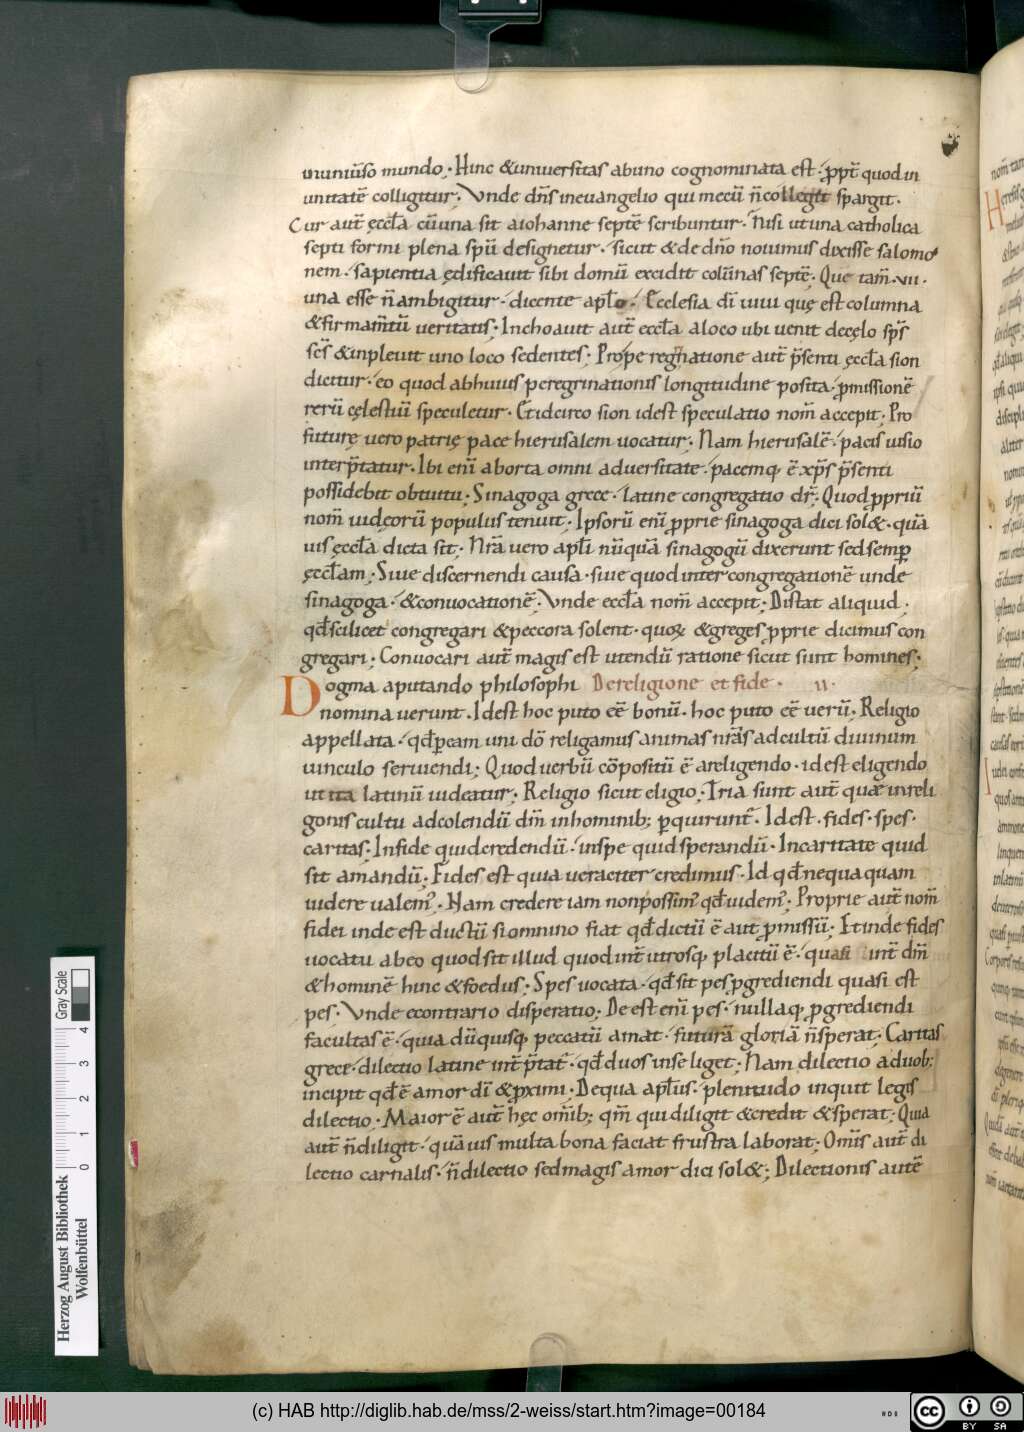 inuniūso mundo. Hinc &uniuersitas abuno cognominata est. ꝓpt̄ quod in
unitatē colligitur. Vnde dn̄s ineuangelio qui mecū n̄collegit spargit.
Cur aut̄ ęccl̄a cū una sit aiohanne septē scribuntur. Nisi ut una catholica
septi formi plena spū designetur. sicut &de dn̄o nouimus dixisse salomo
nem. sapientia ędificauit sibi domū excidit colūnas septē. Que tam̄ .vii.
una esse n̄ambigitur. dicente apl̄o. Ecclesia dī uiui quę est columna
&firmam̄tū ueritatis. Inchoauit aut̄ eccl̄a aloco ubi uenit decęlo sp̄s
sc̄s &inpleuit uno loco sedentes; Pro peregrinatione aut̄ p̄senti ęccl̄a sion
dicitur. eo quod abhuius peregrinationis longitudine posita. ꝓmissionē
rerū cęlestiū speculetur. Et idcirco sion idest speculatio nom̄ accepit; Pro
futurę uero patrię pace hierusalem uocatur; Nam hierusalē. pacis uisio
interp̄tatur. Ibi enī aborta omni aduersitate. pacemq; ē xp̄s p̄senti
possidebit obtutu; Sinagoga grece. latine congregatio dr̄; Quod ꝓpriū
nom̄ iudęorū populus tenuit. Ipsorū enī ꝓprie sinagoga dici sol&. quā
uis ęccl̄a dicta sit; Nr̄a uero apl̄i nūquā sinagogū dixerunt sed semꝑ
ęccl̄am; Siue discernendi causa. siue quod inter congregationē unde
sinagoga. &conuocationē. Vnde eccl̄a nom̄ accepit; Distat aliquid;
qđ scilicet congregari &peccora solent. quoꝝ &greges ꝓprie dicimus con
gregari; Conuocari aut̄ magis est utendū ratione sicut sunt homines;
Dogma aputando philosophi De religione et fide. II.
nomina uerunt. Idest hoc puto eē bonū. hoc puto eē uerū; Religio
appellata. qđ ꝑeam uni dō religamus animas nr̄as ad cultū diuinum
uinculo seruiendi; Quod uerbū cōpositū ē areligendo. idest eligendo
ut ita latinū uideatur; Religio sicut eligio; Tria sunt aut̄ quæ inreli
gonis cultu adcolendū dm̄ inhominib; ꝑquirunt̄. Idest. fides. spes.
caritas. Infide quid credendū. inspe quid sperandū. Incaritate quid
sit amandū; Fides est quia ueraciter credimus. Id qđ nequaquam
uidere ualem᷒. Nam credere iam non possim᷒ qđ uidem᷒; Proprie aut̄ nom̄
fidei inde est ductū si omnino fiat qđ dictū ē aut ꝓmissū; Et inde fides
uocata abeo quod sit illud quod int̄ utrosq; placitū ē. quasi int̄ dm̄
&hominē hinc &foedus; Spes uocata. qđ sit pes ꝓgrediendi quasi est
pes. Vnde econtrario disperatio; De est enī pes. nullaq; ꝓgrediendi
facultas ē. quia dūquisq; peccatū amat. futurā gloriā n̄sperat; Caritas
grece. dilectio latine int̄p̄tat̄. qđ duos inse liget; Nam dilectio aduob;
incipit qđ ē amor dī &ꝓximi. Dequa apl̄us. plenitudo inquit legis
dilectio. Maior ē aut̄ hęc om̄ib; qm̄ qui diligit &credit &sperat; Quia
aut̄ n̄diligit. quā uis multa bona faciat frustra laborat; Omīs aut̄ di
lectio carnalis. n̄dilectio sed magis amor dici sol&; Dilectionis autē
Herzog August Bibliothek
Wolfenbüttel
Gray Scale
0 1 2 3 4
(c) HAB http://diglib.hab.de/mss/2-weiss/start.htm?image=00184
cc BY SA